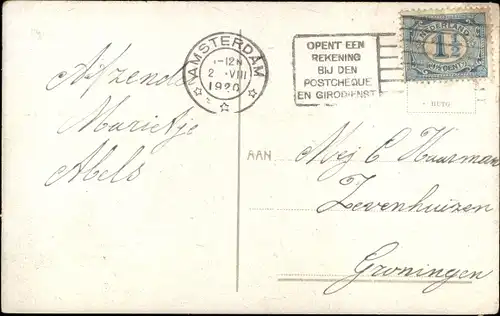 Afzender
Marietje
Abels
AMSTERDAM
1-12N
2 ·VIII
1920
OPENT EEN
REKENING
BIJ DEN
POSTCHEQUE
EN GIRODIENST
NEDERLAND
1½
CENT
AAN
Mej C Haarman
Zevenhuizen
Groningen